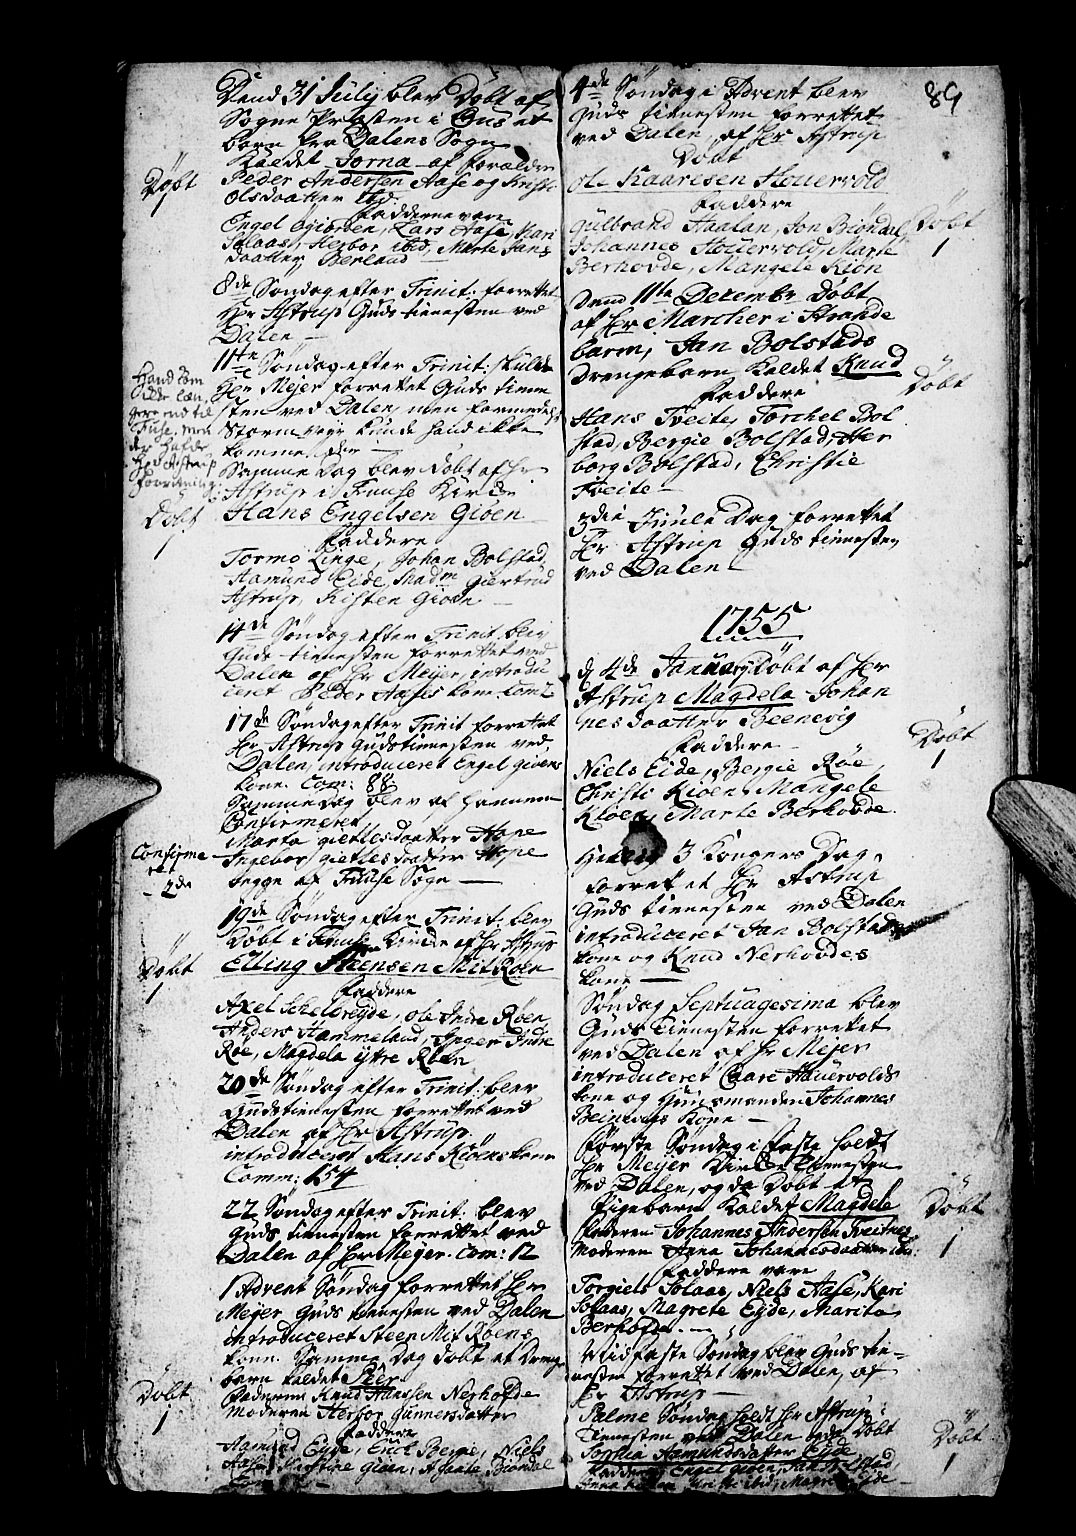 Dend 31 July blev Døbt af
Sogne Præsten i Huus et
barn fra Dalens Sogn
Kaldet Jorna af forældre
Døbt
1
Peder Andersen Aase og Kirsti
Olsdaatter ibid.
Faddere vare
Engel Lars Aase, Kari
Solaas, Herbor ibid, Marte Jans
daatter Berland
8de Søndag efter Trinit: forrettet
Hr Astrup Guds tienesten ved
Dalen
11te Søndag efter Trinit: skulde
Hr Meyer forrettet Guds tienne
sten ved Dalen, men formedelst
Storm veyr kunde hand ikke
komme der
Hand kom
ikke læn,
gere end til
Fuse, men
der hafde
Hr Astrup
forretning
Samme Dag blev Døbt af Hr
Astrup i Fuuse Kirche
Døbt
1
Hans Engelsen Gioen
Faddere
Tormo Linge, Johan Bolstad
Aamund Eide, Madm Giertrud
Astrup, Kisten Gioen
14de Søndag efter Trinit. blev
Guds tienesten forrettet ved
Dalen af Hr Meyer, introdu
ceret Peder Aases kone Com: 2
17de Søndag efter Trinit forrettet
Hr Astrup Gudstienesten ved
Dalen, introduceret Engel Gioens
kone. Com: 88
Samme Dag blev af hannem
Confirmeret
Marta gietlesdaatter Hope
Confirme
ret
2de
Ingebor gietlesdaatter Hope
begge af Fuuse Sogn
19de Søndag efter Trinit. blev
Døbt i Fuuse Kirche af Hr Astrup
Døbt
1
Elling Steensen Mit Røen
Faddere
Axel Scheldregde, Ole Indre Røen
Anders Hammeland, Inger Indre
Røe, Magdela ytre Røen
20de Søndag efter Trinit: blev
Gudstienesten forrettet ved
Dalen af Hr Astrup.
introduceret Hans Kiøens kone
Comm: 154
22 Søndag efter Trinit: blev
Guds tienesten forrettet ved
Dalen af Hr Meyer. Com: 12
1 Advent Søndag forrettet Hr
Meyer Guds tienesten ved Dalen
introduceret Steen Mit Røens
kone. Samme Dag døbt et Drenge
barn kaldet Peer
Døbt
1
Faderen Knud Hansen Nerhofde
Moderen Herbor Gunnersdatter
Faddere
Aamund Eyde, Erich Berge, Niels
Aase, Kirstine Gioen, Agaate Biondal
89
4de Søndag i Advent blev
Guds tienesten forrettet
ved Dalen, af Hr Astrup
Døbt
Ole Kaaresen Houervold
Faddere
Døbt
1
Gulbrand Haalan, Jon Biøndal
Johannes Houervold, Marte
Berhovde, Mangele Kiøn
Dend 11te Decembr Døbt
af Hr Marcher i Strande
barm, Jan Bolstads
Drengebarn kaldet Knud
Døbt
Faddere
Hans Tveite, Torchel Bol
stad, Bergie Bolstad, Her
borg Bolstad, Christie
Tveite
3die Juule Dag forrettet
Hr Astrup Guds tienesten
ved Dalen
1755
d 4de January døbt af Hr
Astrup Magdela Johan
nesdaatter Beenevig
Faddere
Døbt
1
Niels Eide, Bergie Røe,
Christi Kioen, Mangele
Kioen, Marte Berhovde
3 Konger Dag
forrettet Hr Astrup
Guds tienesten ved Dalen
introduceret Jan Bolstads
kone og Knud Nerhovdes
kone
Søndag Septuagesima blev
Guds tienesten forrettet
ved Dalen af Hr Meyer
introduceret Caare Hauervolds
kone og Huusmanden Johannes
Beinevigs kone
Første Søndag i Faste holdt
Hr Meyer Kirke tienesten
ved Dalen, og da Døbt et
Pigebarn kaldet Magdele
Døbt
1
Faderen Johannes Andersen Tveitnes
Moderen Anna Johannesdaatter ibid:
Faddere vare
Torgiels Solaas, Niels Aase, Kari
Solaas, Magrete Eyde, Marita
Berhofde
Midfaste Søndag blev Guds tie-
nesten forrettet ved Dalen, af
Hr Astrup
Palme Søndag holdt Hr Astrup
Tienesten ved Dalen og da Døbt
Døbt
1
Sophia Aamundsdatter Eyde
Faddere Engel Gioen,